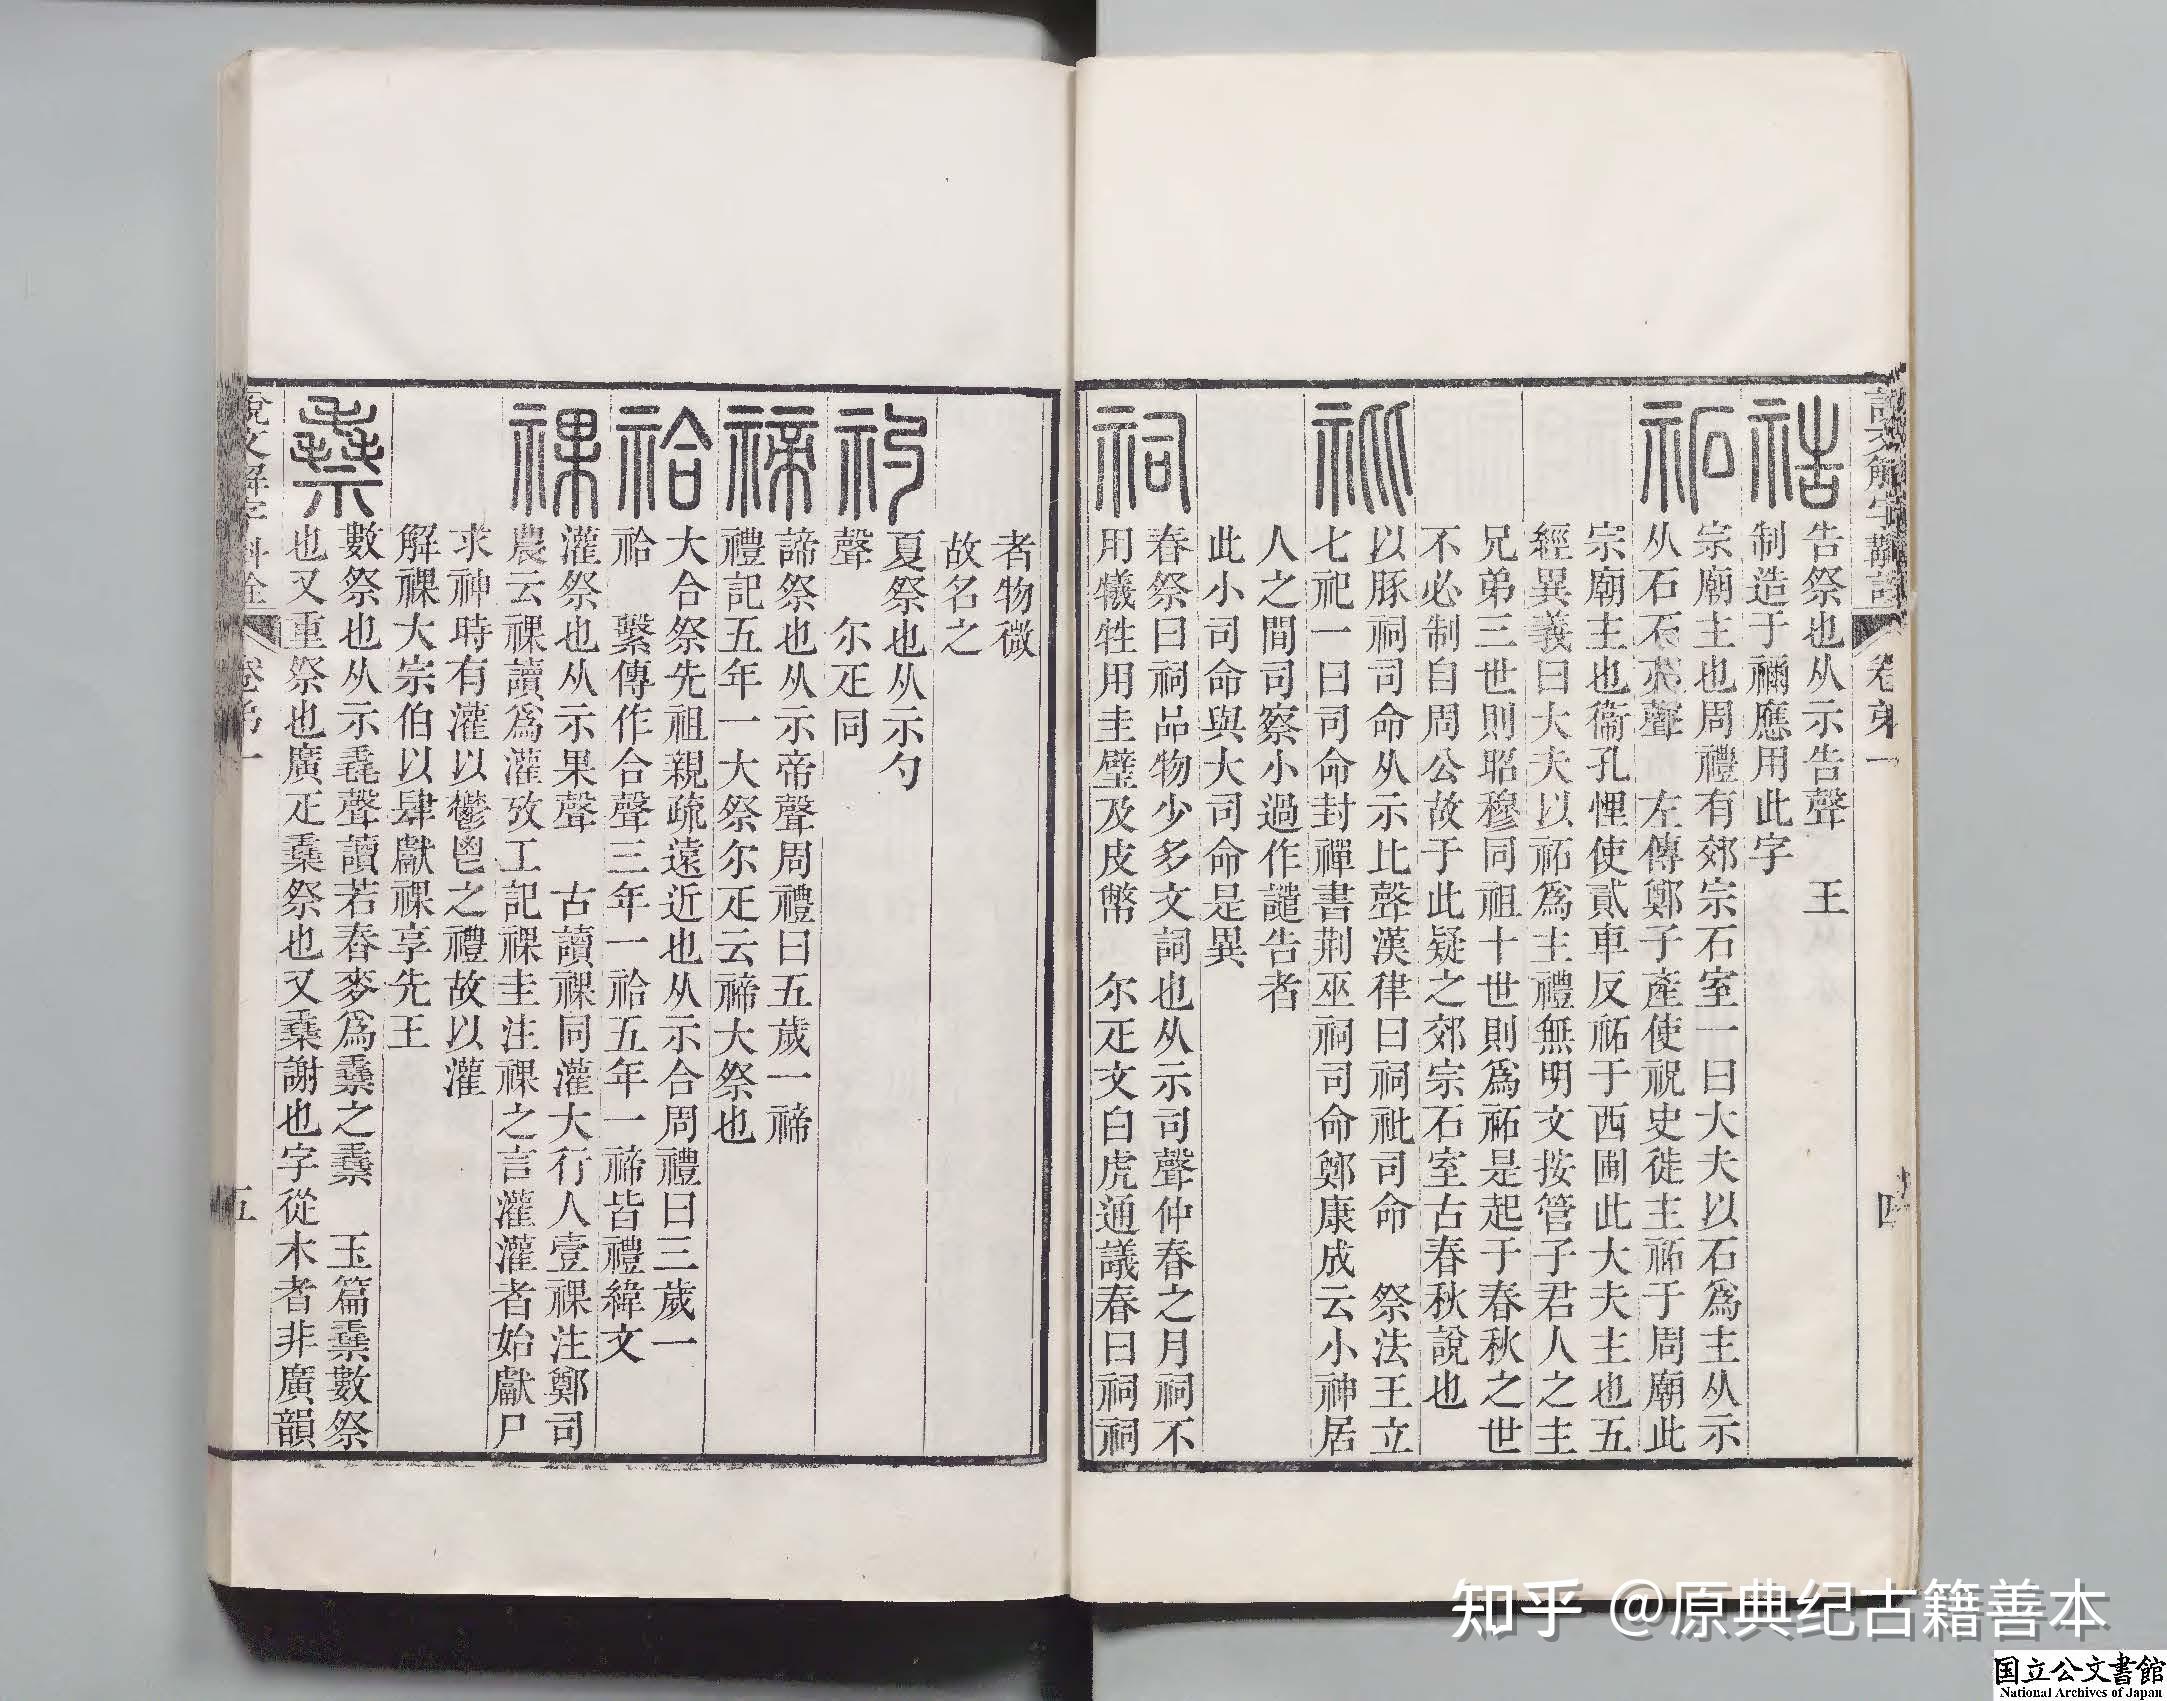 說文解字斠詮
卷弟一
四
祰
告祭也从示告聲　王
制造于禰應用此字
祏
宗廟主也周禮有郊宗石室一曰大夫以石爲主从示
从石石亦聲　左傳鄭子產使祝史徙主祏于周廟此
宗廟主也衞孔悝使貳車反祏于西圃此大夫主也五
經異義曰大夫以祏爲主禮無明文按管子君人之主
兄弟三世則昭穆同祖十世則爲祏是起于春秋之世
不必制自周公故于此疑之郊宗石室古春秋說也
𥘶
以豚祠司命从示比聲漢律曰祠祉司命　祭法王立
七祀一曰司命封禪書荆巫祠司命鄭康成云小神居
人之間司察小過作譴告者
此小司命與大司命是異
祠
春祭曰祠品物少多文詞也从示司聲仲春之月祠不
用犧牲用圭璧及皮幣　尔疋文白虎通議春曰祠祠
者物微
故名之
礿
夏祭也从示勺
聲　尔疋同
禘
諦祭也从示帝聲周禮曰五歲一禘
禮記五年一大祭尔疋云禘大祭也
祫
大合祭先祖親疏遠近也从示合周禮曰三歲一
祫　繫傳作合聲三年一祫五年一禘皆禮緯文
祼
灌祭也从示果聲　古讀祼同灌大行人壹祼注鄭司
農云祼讀爲灌攷工記祼圭注祼之言灌灌者始獻尸
求神時有灌以鬱鬯之禮故以灌
解祼大宗伯以肆獻祼享先王
𥜒
數祭也从示毳聲讀若舂麥爲𥜒之𥜒　玉篇𥜒數祭
也又重祭也廣疋𥜒祭也又𥜒謝也字從木者非廣韻
說文解字斠詮
卷弟一
五
知乎 @原典纪古籍善本
国立公文書館
National Archives of Japan